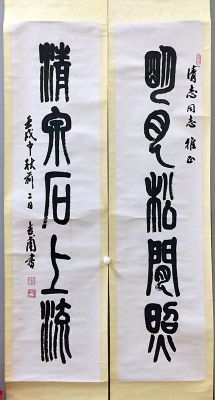 清志同志雅正
明月松間照
清泉石上流
壬戌中秋前二日
吉甫书